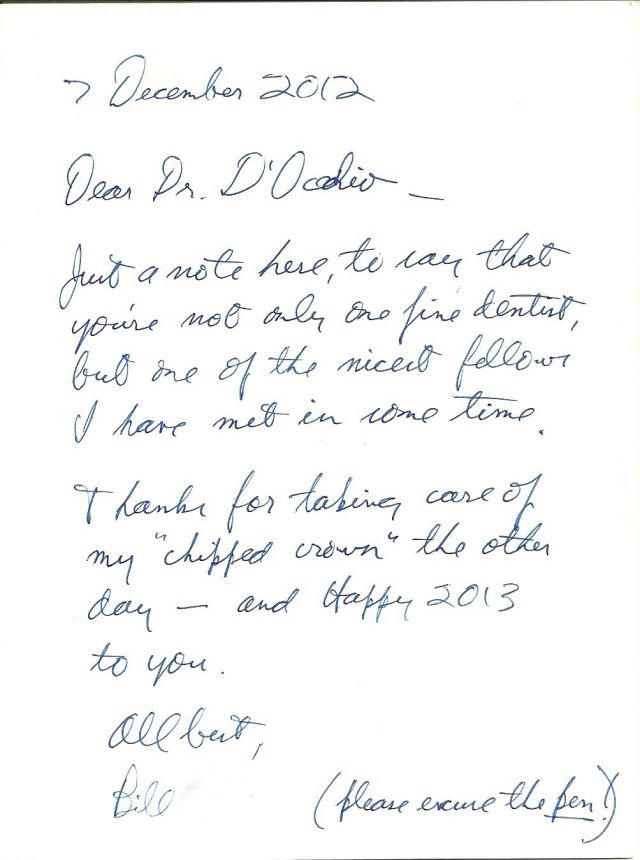 7 December 2012
Dear Dr. D'Ocohio —
Just a note here, to say that
you're not only one fine dentist,
but one of the nicest fellows
I have met in some time.
Thanks for taking care of
my "chipped crown" the other
day — and Happy 2013
to you.
All best,
Bill
(please excuse the pen!)